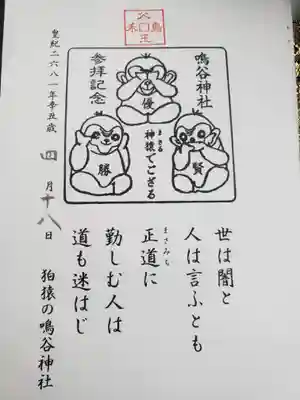 鳴谷神社
賢
優
まさる
神猿でござる
勝
参拝記念
皇紀二六八一年辛丑歳 四月十八日
世は闇と
人は言ふとも
まさみち
正道に
勤しむ人は
道も迷はじ
狛猿の鳴谷神社